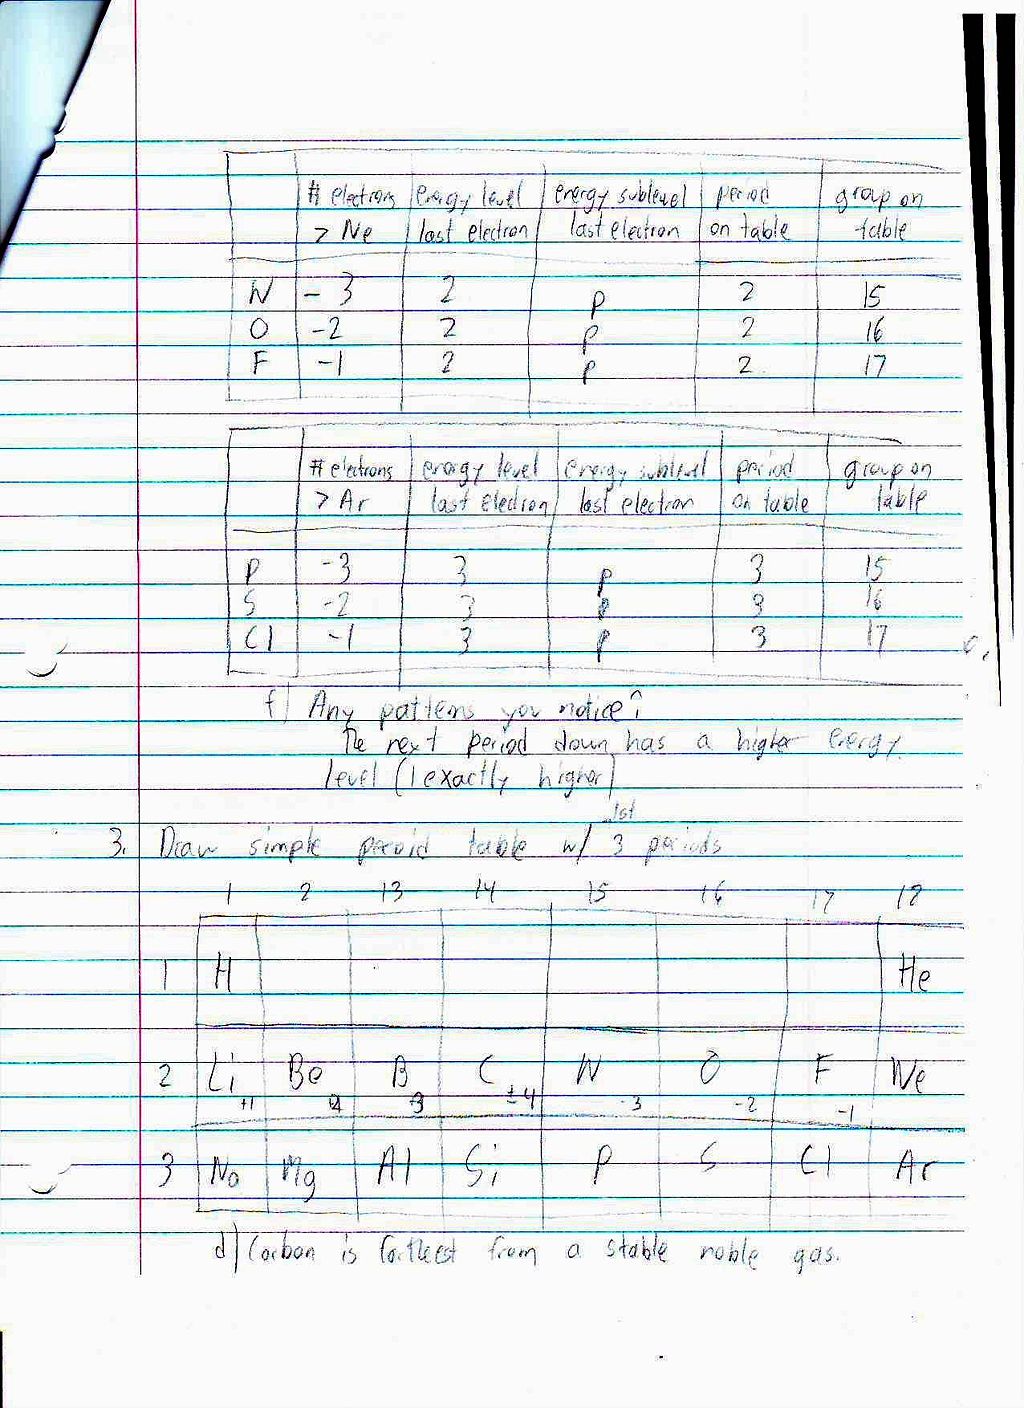 # electrons energy level energy sublevel period group on
> Ne last electron last electron on table table
N -3 2 p 2 15
O -2 2 p 2 16
F -1 2 p 2 17
# electrons energy level energy sublevel period group on
> Ar last electron last electron on table table
P -3 3 p 3 15
S -2 3 p 3 16
Cl -1 3 p 3 17
f) Any patterns you notice?
The next period down has a higher energy
level (1 exactly higher)
1st
3. Draw simple peroid table w/ 3 periods
1 2 13 14 15 16 17 18
1 H He
2 Li Be B C N O F Ne
+1 ±4 -3 -2 -1
3 Na Mg Al Si P S Cl Ar
d) Carbon is farthest from a stable noble gas.